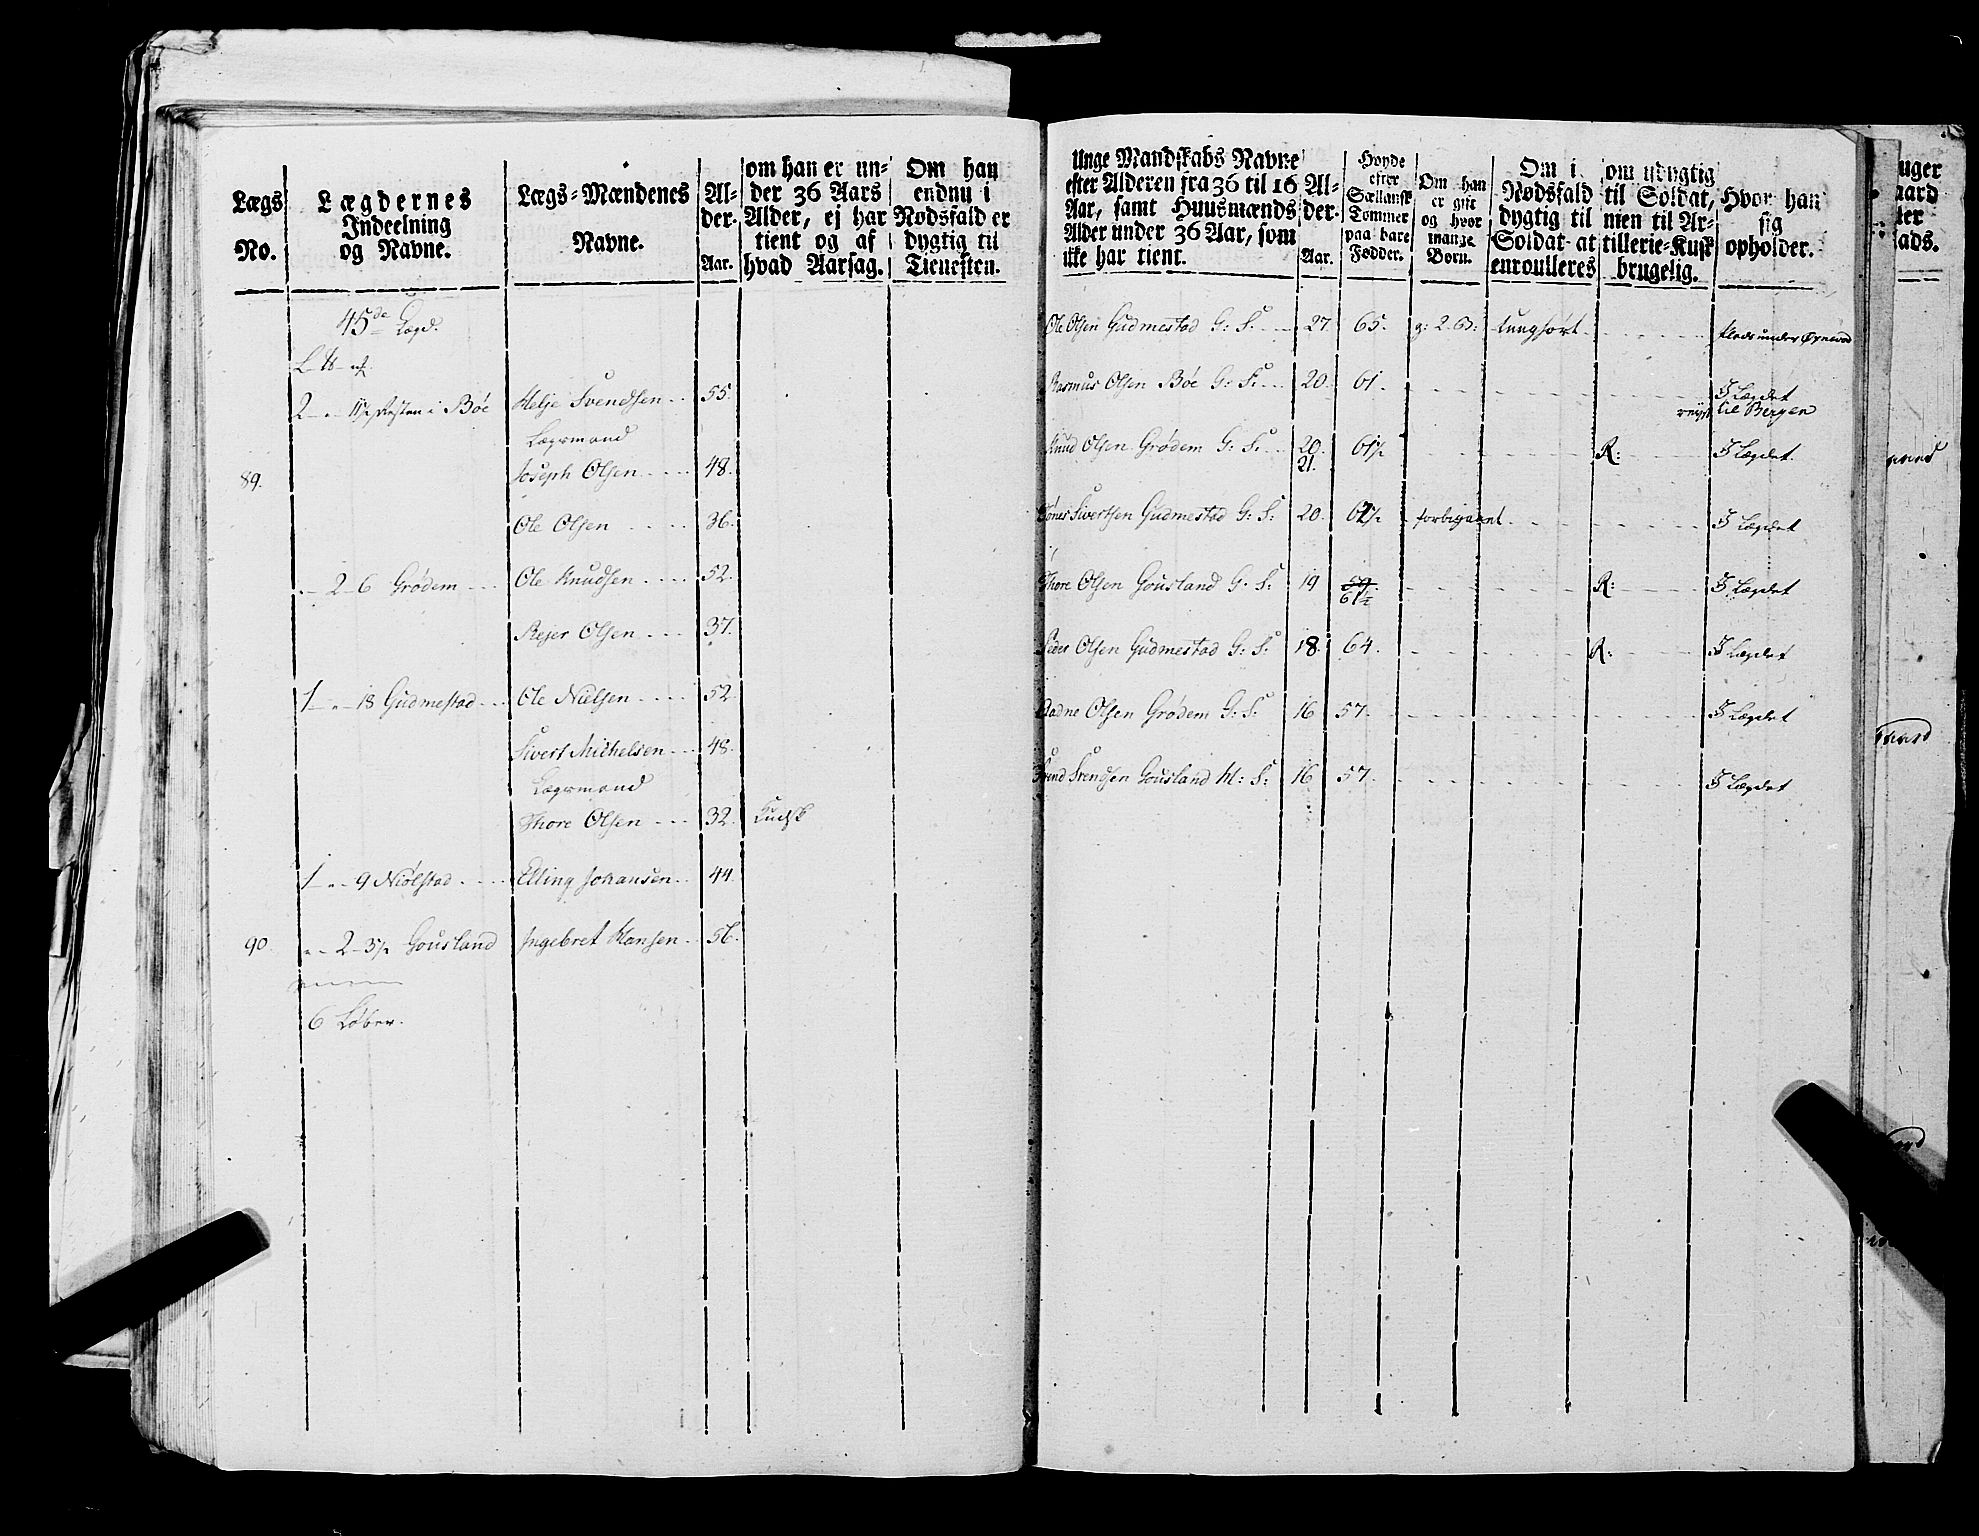 Lægs No.
Lægdernes Indeelning og Navne.
Lægs-Mændenes Navne.
Al-der. Aar.
om han er un-
der 36 Aars
Alder, ej har
tient og af
hvad Aarsag.
Om han
endnu i
Nødsfald er
dygtig til
Tienesten.
45de Lægd.
2 - " - 11 1/2 Resten i Böe Helje Svendsen .. 55.
Lægsmand
89. Joseph Olsen .... 48.
Ole Olsen .... 36.
" - 2 - 6 Grödem ... Ole Knudsen .... 52.
Rejer Olsen ... 37.
1 - " - 18 Gudmestad ... Ole Nielsen .... 52
Sivert Michelsen ... 48.
Lægsmand
Thore Olsen ... 32. Kudsk
1 - " - 9 Niölstad .... Elling Johansen .. 44.
90. " - 2 - 3 1/2 Gousland Ingebret Hansen .. 56.
6 Löber.
Unge Mandskabs Navne
efter Alderen fra 36 til 16
Aar, samt Huusmænds
Alder under 36 Aar, som
ikke har tient.
Al-
der.
Aar.
Høyde
efter
Sællansk
Tommer
paa bare
Fødder.
Om han
er gift
og hvor
mange
Børn.
Om i
Nødsfald
dygtig til
Soldat at
enroulleres
om udygtig
til Soldat,
men til Ar-
tillerie-Kusk
brugelig.
Hvor han
sig
opholder.
Ole Olsen Gudmestad G: S: ... 27. 65. g: 2 B: tunghört ..... Plads under
Rasmus Olsen Böe G: S: ... 20. 61. ..... I Lægdet
reyst til Bergen
Knud Olsen Grödem G: S: ... 20. 61 1/2 ..... R: .... I Lægdet.
21.
Tönes Sivertsen Gudmestad G: S: 20. forbigaaet ..... I Lægdet
Thore Olsen Gousland G: S: 19 59. ..... R: .... I Lægdet
61 1/2
Peder Olsen Gudmestad G: S: 18. 64. ..... R: .... I Lægdet
Olsen Grödem G: S: 16 57. ..... I Lægdet
Svend Svendsen Gousland H: S: 16 57. ..... I Lægdet